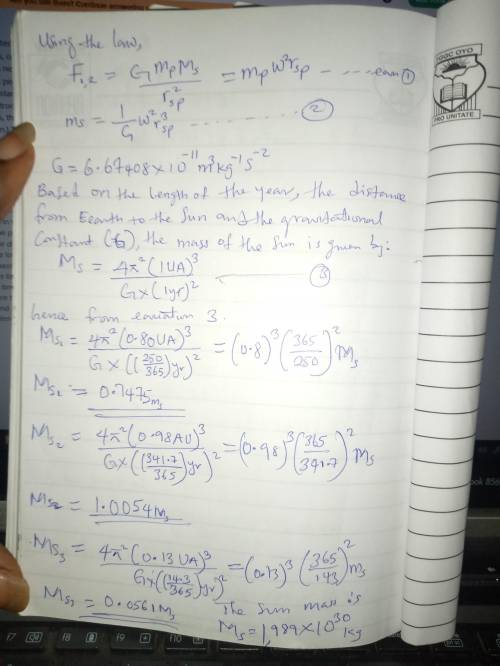 Using the law,
F₁,₂ = G mp Ms / r²sp = mp w² rsp - - - - - eqn ①
ms = 1/G w² r³sp - - - - - - - ②
G = 6.67408 x 10⁻¹¹ m³ kg⁻¹ s⁻²
Based on the length of the year, the distance
from Eeanth to the Sun and the gravitational
Constant (G), the mass of the Sun is given by:
Ms = 4π² (1UA)³ / G x (1yr)² - - - - ③
hence from equation 3.
Ms₁ = 4π² (0.80UA)³ / G x ((250/365)yr)² = (0.8)³ (365/250)² Ms
Ms₁ = 0.7475ms
Ms₂ = 4π² (0.98AU)³ / Gx ((341.7/365)yr)² = (0.98)³ (365/341.7)² Ms
Ms₂ = 1.0054Ms
Ms₃ = 4π² (0.13UA)³ / Gx ((34.3/365)yr)² = (0.13)³ (365/143)² ms
Ms₃ = 0.0561Ms
The Sun mass is
Ms = 1,989 x 10³⁰ kg
PRO UNITATE
F7
F8
F9
F10